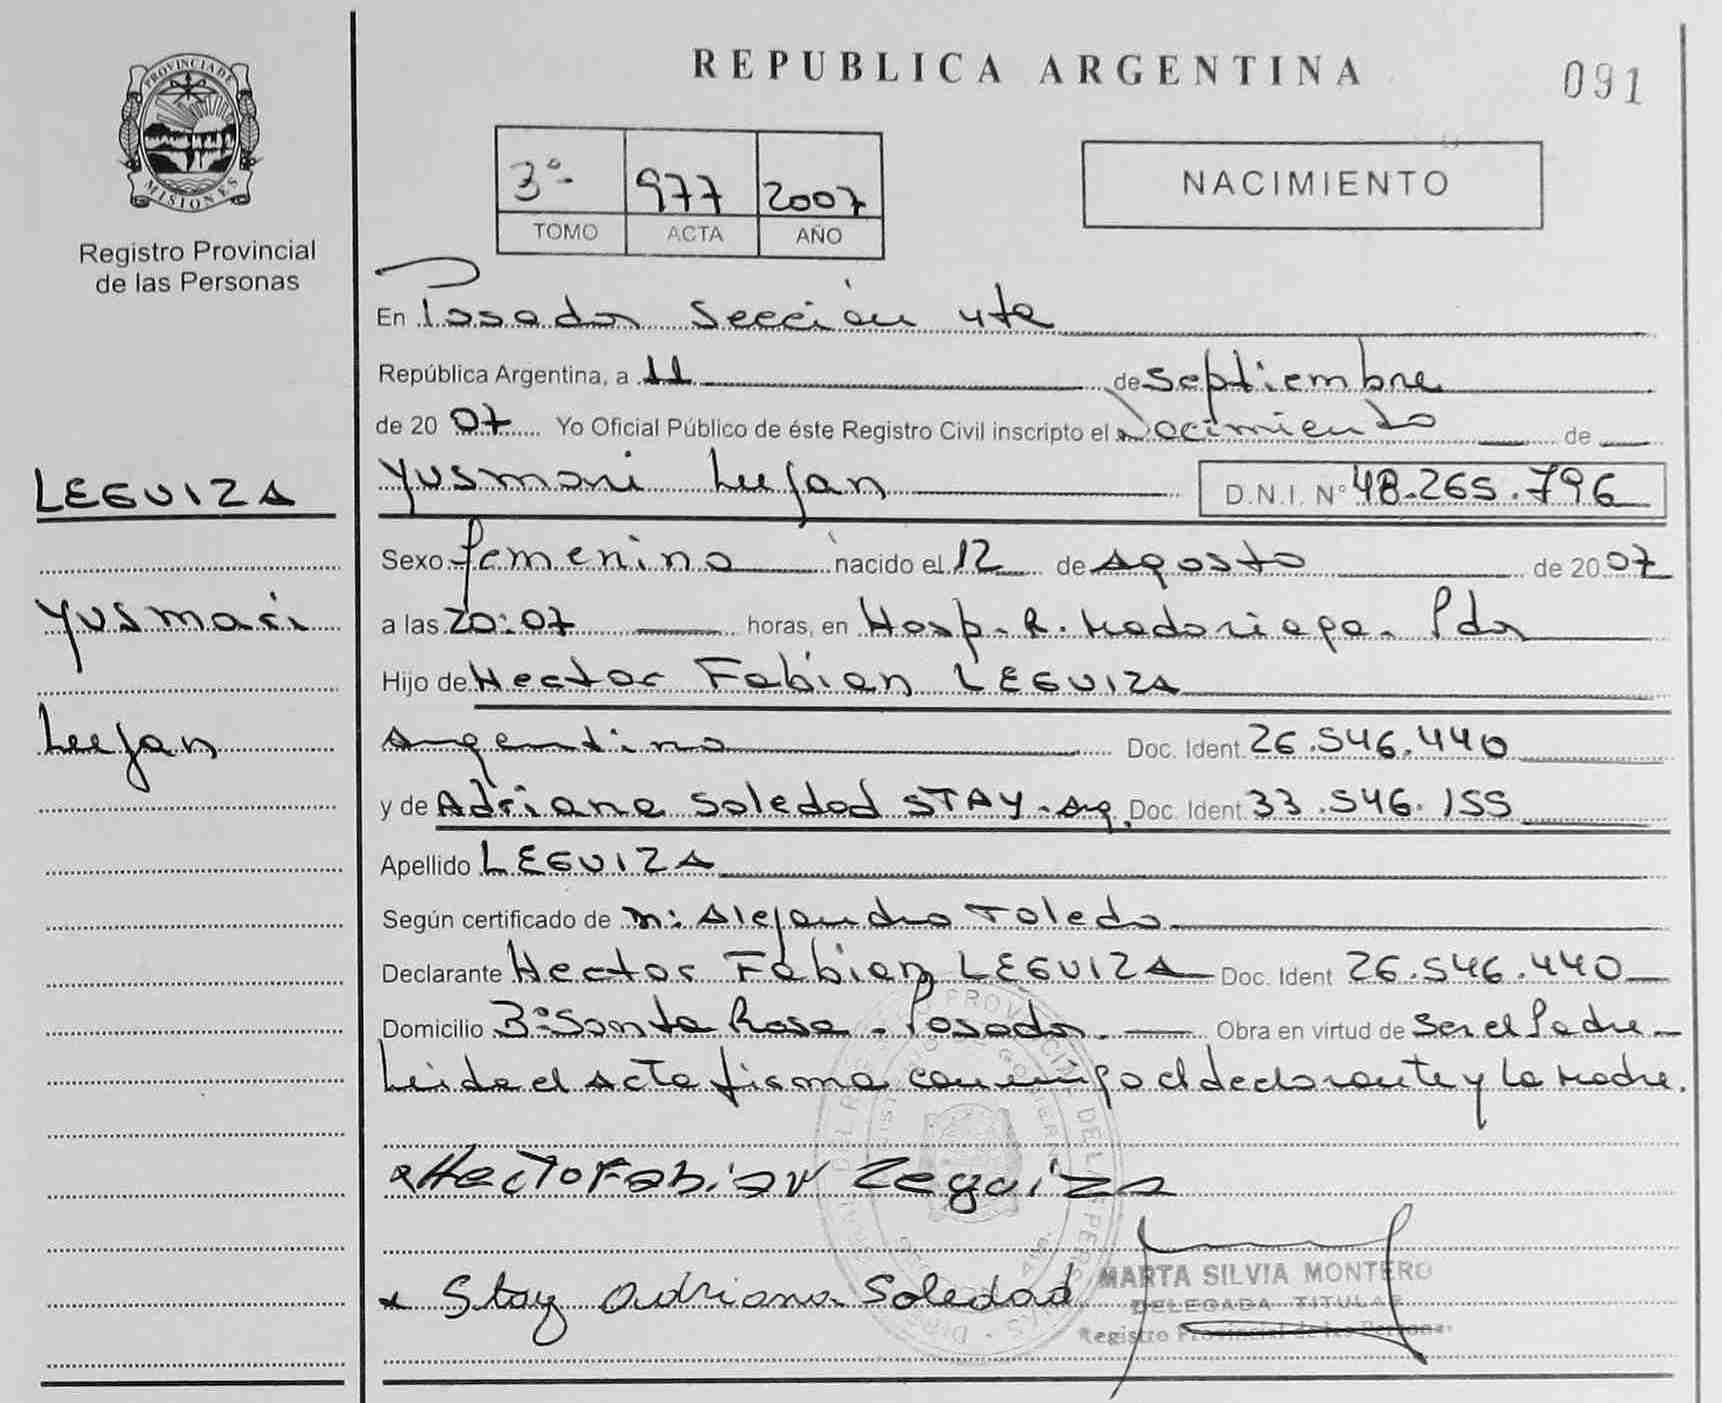 REPUBLICA ARGENTINA
091
PROVINCIA DE
MISIONES
Registro Provincial
de las Personas
3º 977 2007
TOMO ACTA AÑO
NACIMIENTO
En Posadas Sección 4ta
República Argentina, a 11 de Septiembre
de 2007 Yo Oficial Público de éste Registro Civil inscripto el Nacimiento de
Yusmari Leejan D.N.I. Nº 48.265.796
LEGUIZA
Yusmari
Leejan
Sexo femenino nacido el 12 de Agosto de 2007
a las 20:07 horas, en Hosp. R. Madariaga. Pdas
Hijo de Hector Fabian LEGUIZA
Argentino Doc. Ident. 26.546.440
y de Adriana Soledad STAY. Arg. Doc. Ident. 33.546.155
Apellido LEGUIZA
Según certificado de M: Alejandro Toledo
Declarante Hector Fabian LEGUIZA Doc. Ident 26.546.440
Domicilio 3º Santa Rosa - Posadas. Obra en virtud de Ser el Padre
Leida el acta firma conmigo el declarante y la Madre.
Hector Fabian Leguiza
Stay Adriana Soledad
MARTA SILVIA MONTERO
DELEGADA TITULAR
Registro Provincial de las Personas